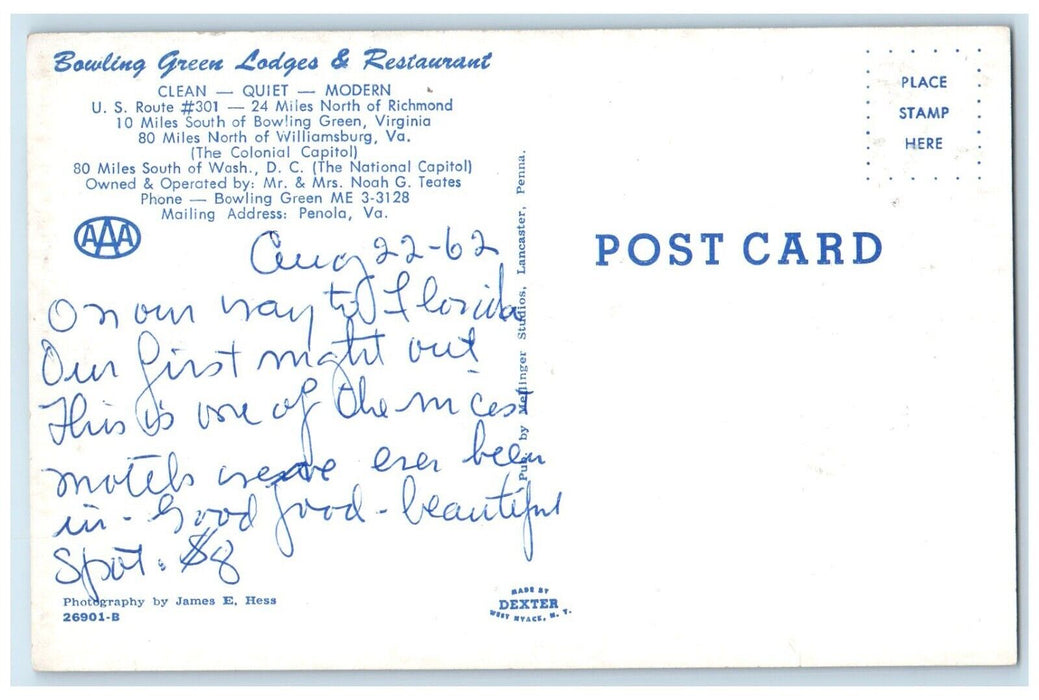 Bowling Green Lodges & Restaurant
CLEAN — QUIET — MODERN
U. S. Route #301 — 24 Miles North of Richmond
10 Miles South of Bowling Green, Virginia
80 Miles North of Williamsburg, Va.
(The Colonial Capitol)
80 Miles South of Wash., D. C. (The National Capitol)
Owned & Operated by: Mr. & Mrs. Noah G. Teates
Phone — Bowling Green ME 3-3128
Mailing Address: Penola, Va.
AAA
Aug 22-62
On our way to Florida
Our first night out
This is one of the nicest
motels weave ever been
in - Good food - beautiful
Spot. $8
Photography by James E. Hess
26901-B
Pub. by Mellinger Studios, Lancaster, Penna.
MADE BY
DEXTER
WEST NYACK, N. Y.
POST CARD
PLACE
STAMP
HERE